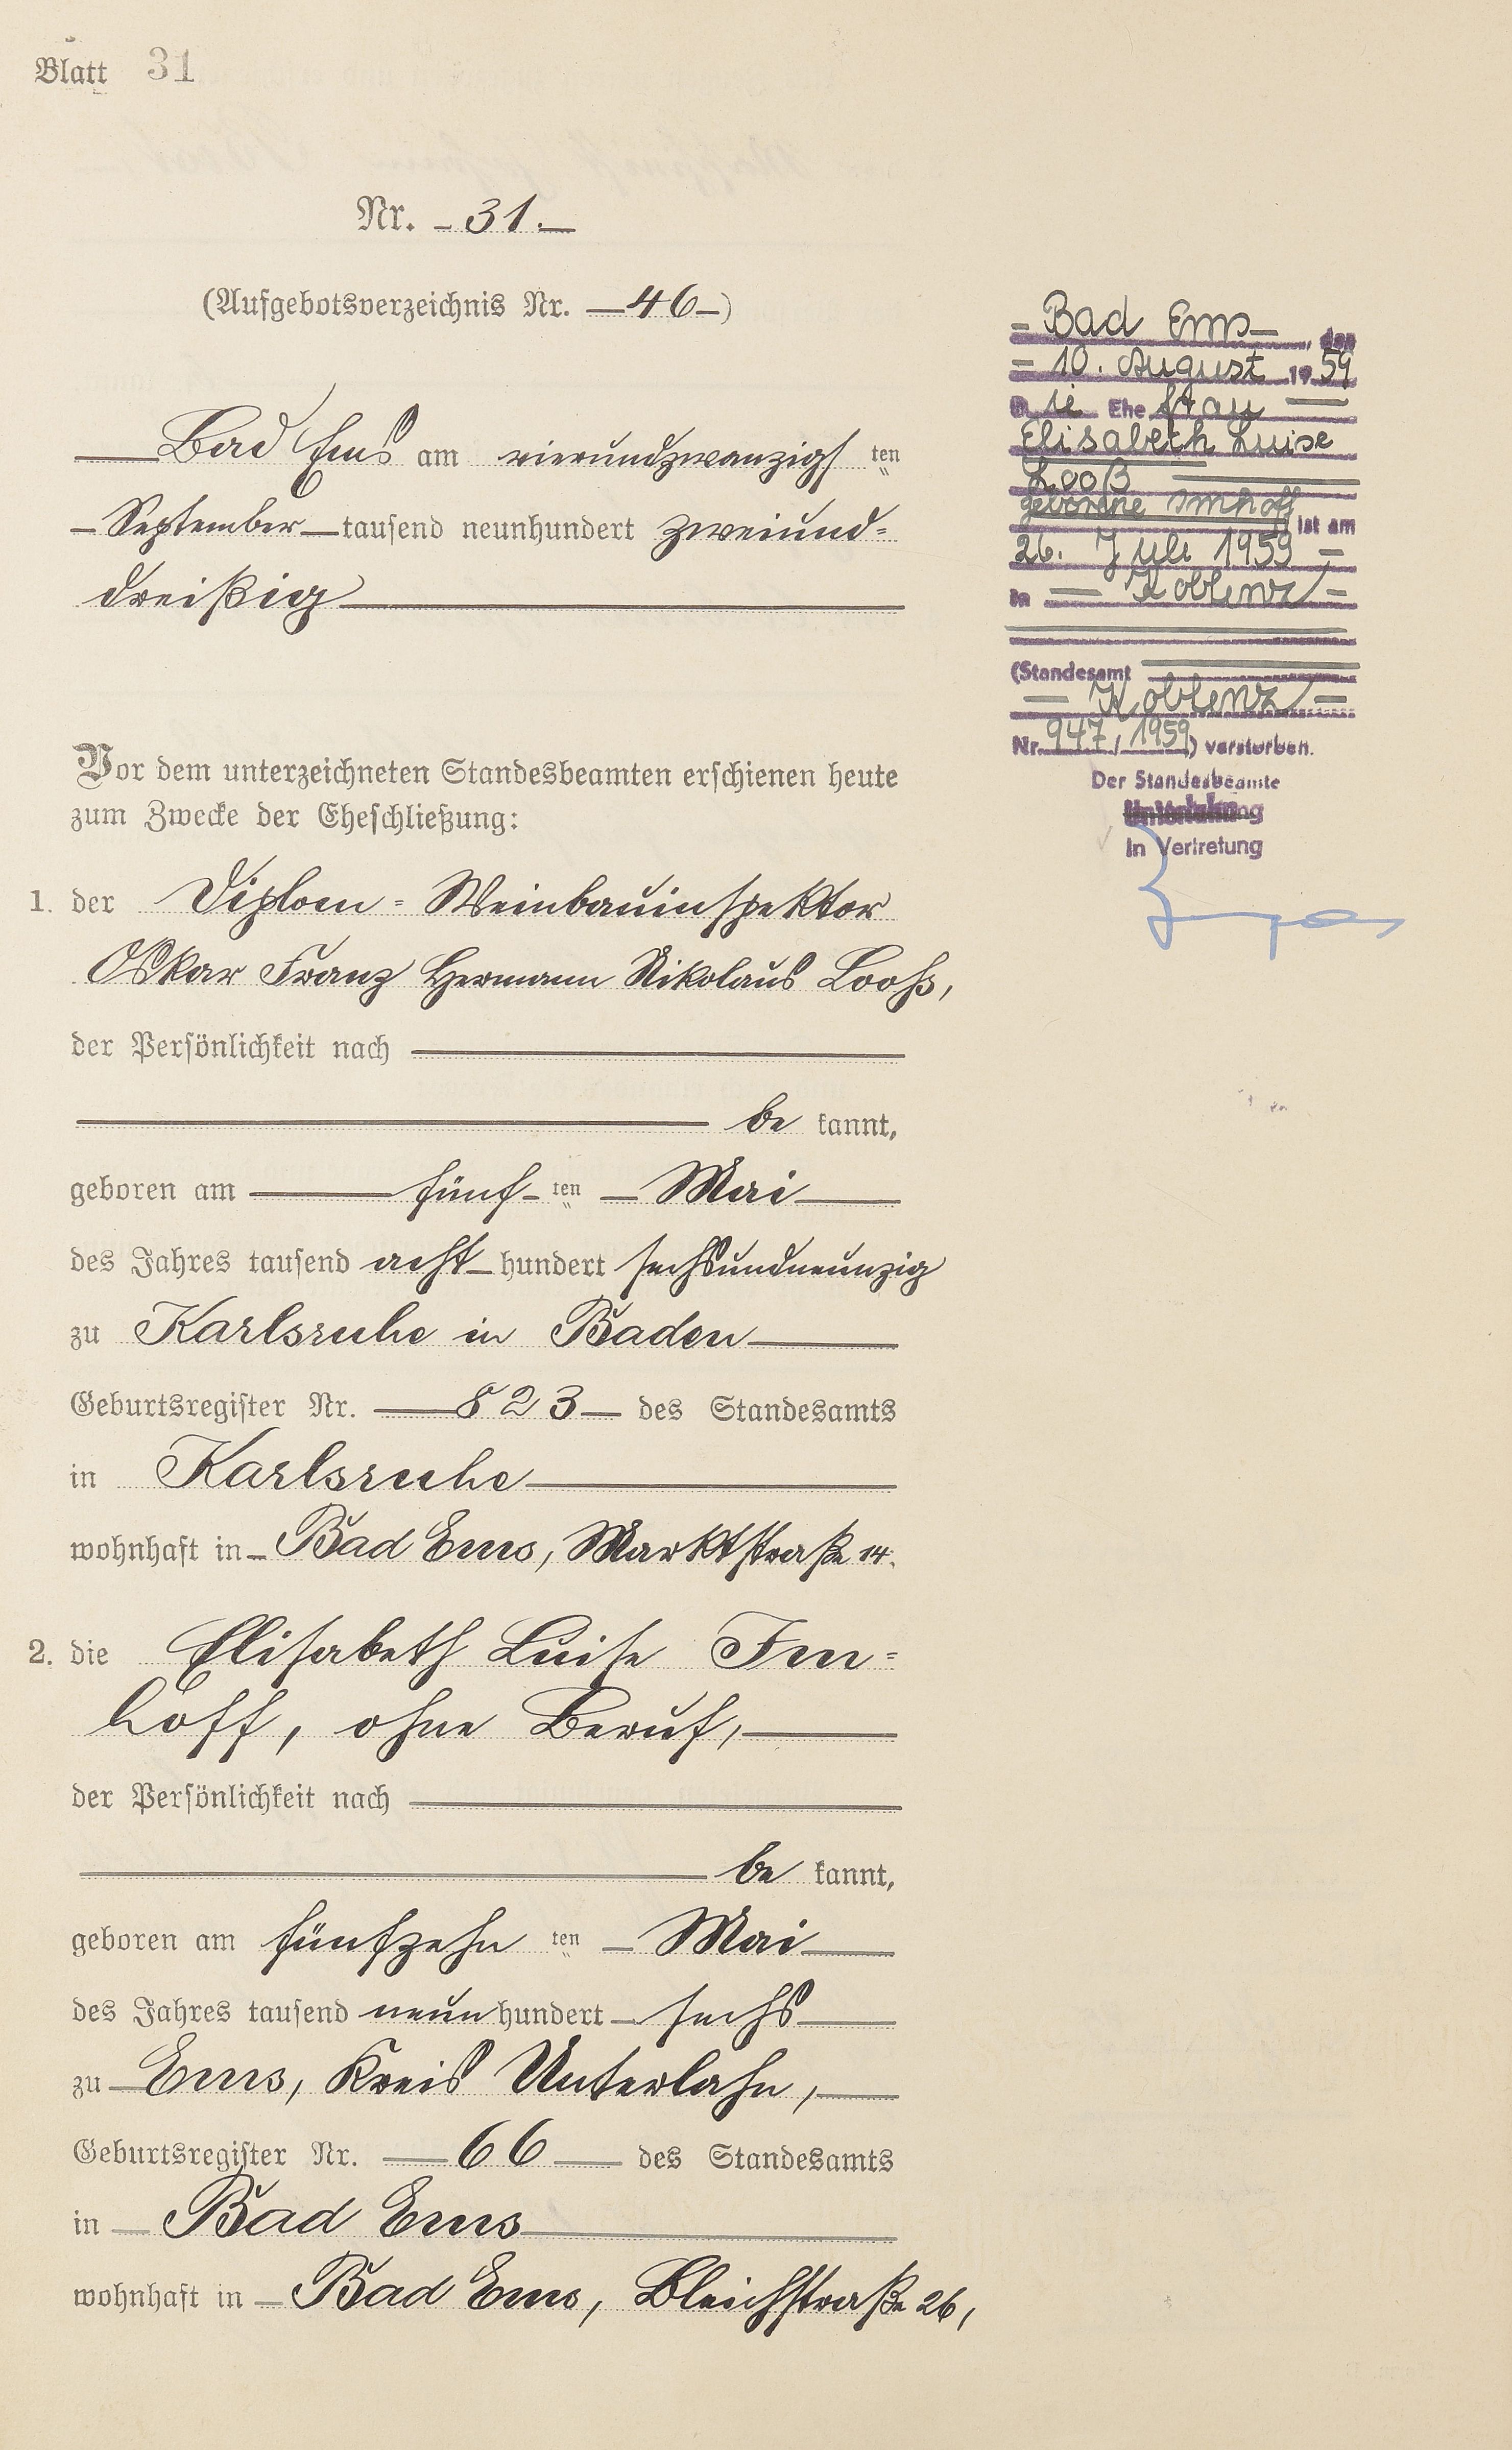 Blatt 31
Nr. 31.
(Aufgebotsverzeichnis Nr. 46)
Bad Ems am vierundzwanzigs ten
September tausend neunhundert zweiund=
dreißig
Vor dem unterzeichneten Standesbeamten erschienen heute
zum Zwecke der Eheschließung:
1. der Diplom=Weinbauinspektor
Oskar Franz Hermann Nikolaus Looß,
der Persönlichkeit nach
be kannt,
geboren am fünf ten Mai
des Jahres tausend acht hundert sechsundneunzig
zu Karlsruhe in Baden
Geburtsregister Nr. 823 des Standesamts
in Karlsruhe
wohnhaft in Bad Ems, Marktstraße 14.
2. die Elisabeth Luise Im=
hoff, ohne Beruf,
der Persönlichkeit nach
be kannt,
geboren am fünfzehn ten Mai
des Jahres tausend neun hundert sechs
zu Ems, Kreis Unterlahn,
Geburtsregister Nr. 66 des Standesamts
in Bad Ems
wohnhaft in Bad Ems, Bleichstraße 26,
Bad Ems, den
10. August 1959
Die Ehefrau
Elisabeth Luise
Looß
geborene Imhoff ist am
26. Juli 1959
in Koblenz
(Standesamt
Koblenz
Nr. 947/1959) verstorben.
Der Standesbeamte
In Vertretung